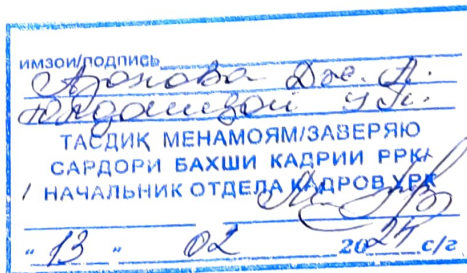 имзои/подпись
Аронова Дж. А.
Юлдошзои У. А.
ТАСДИҚ МЕНАМОЯМ/ЗАВЕРЯЮ
САРДОРИ БАХШИ КАДРИИ РРК/
/ НАЧАЛЬНИК ОТДЕЛА КАДРОВ УРК
" 13 " 02 2024 с/г